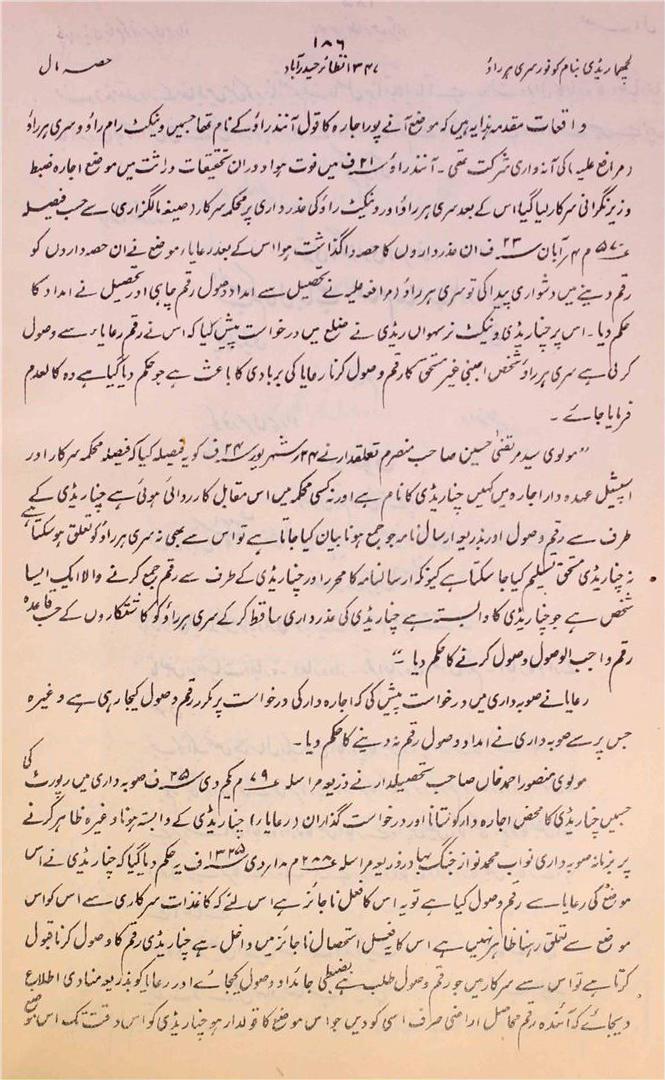 ۱۸۶
لچھما ریڈی بنام کو نور سری ہر راؤ ۱۳۴۷ نظائر حیدرآباد حصہ مال
واقعات مقدمہ ہذا یہ ہیں کہ موضع آنے پور اجارہ کا قول آنند راؤ کے نام تھا جسمیں ونیکٹ رام راؤ و سری ہر راؤ
(مرافع علیہ) کی آنہ واری شرکت تھی۔ آنند راؤ ۲۱ سنہ ف میں فوت ہوا دوران تحقیقات وراثت میں موضع اجارہ ضبط
وزیر نگرانی سرکار لیا گیا اس کے بعد سری ہر راؤ اور ونیکٹ راؤ کی عذر داری پر محکمہ سرکار (صیغہ مالگزاری) سے حسب فیصلہ
۵۷ م ۴ر آبان ۲۳ سنہ ف ان عذر داروں کا حصہ واگذاشت ہوا اس کے بعد رعایاء موضع نے ان حصہ داروں کو
رقم دینے میں دشواری پیدا کی تو سری ہر راؤ (مرافعہ علیہ نے تحصیل سے امداد وصول رقم چاہی اور تحصیل نے امداد کا
حکم دیا۔ اس پر چنا ریڈی ونیکٹ نرسمہواں ریڈی نے ضلع میں درخواست پیش کیا کہ اس نے رقم رعایاء سے وصول
کر لی ہے سری ہر راؤ شخص اجنبی غیر مستحق کا رقم وصول کرنا رعایا کی بربادی کا باعث ہے جو حکم دیا گیا ہے وہ کالعدم
فرمایا جائے۔
”مولوی سید مرتضیٰ حسین صاحب منصرم تعلقدار نے ۲۴ر شہر یور ۲۴ سنہ ف کو یہ فیصلہ کیا کہ فیصلہ محکمہ سرکار اور
اسپیشل عہدہ دار اجارہ میں کہیں چنا ریڈی کا نام ہے اور نہ کسی محکمہ میں اس مقابل کارروائی ہوئی ہے چنا ریڈی کے
طرف سے رقم وصول اور بذریعہ ارسال نامہ جو جمع ہونا بیان کیا جاتا ہے تو اس سے بھی نہ سری ہر راؤ کو تعلق ہو سکتا ہے
نہ چنا ریڈی مستحق تسلیم کیا جا سکتا ہے کیونکہ ارسالنامہ کا محرر اور چنا ریڈی کے طرف سے رقم جمع کرنے والا ایک ایسا
شخص ہے جو چنا ریڈی کا وابستہ ہے چنا ریڈی کی عذر داری ساقط کر کے سری ہر راؤ کو کاشتکاروں کے حسب قاعدہ
رقم واجب الوصول وصول کرنے کا حکم دیا۔“
رعایا نے صوبہ داری میں درخواست پیش کی کہ اجارہ دار کی درخواست پر مکرر رقم وصول کیجا رہی ہے وغیرہ
جس پر سے صوبہ داری نے امداد وصول رقم نہ دینے کا حکم دیا۔
مولوی منصور احمد خاں صاحب تحصیلدار نے ذریعہ مراسلہ ۷۹ م یکم دی ۲۵ سنہ ف صوبہ داری میں رپورٹ کی
جسمیں چنا ریڈی کا محض اجارہ دار کو ستانا اور درخواست گذاران (رعایا) چنا ریڈی کے وابستہ ہونا وغیرہ ظاہر کرنے
پر بزمانہ صوبہ داری نواب محمد نواز جنگ بہادر ذریعہ مراسلہ ۲۸۸ م ۱۸ر دی ۱۳۲۵ ف یہ حکم دیا گیا کہ چنا ریڈی نے اس
موضع کی رعایا سے رقم وصول کیا ہے تو یہ اس کا فعل ناجائز ہے اس لئے کہ کاغذات سرکاری سے اس کو اس
موضع سے تعلق رہنا ظاہر نہیں ہے اس کا یہ فیصل استحصال ناجائز میں داخل۔ ہے چنا ریڈی رقم کا وصول کرنا قبول
کرتا ہے تو اس سے سرکار میں جو رقم وصول طلب ہے بضبطی جائداد وصول کیجائے اور رعایا کو بذریعہ منادی اطلاع
دیجائے کہ آئندہ رقم محاصل اراضی صرف اسی کو دیں جو اس موضع کا قولدار ہو چنا ریڈی کو اس وقت تک اس موضع